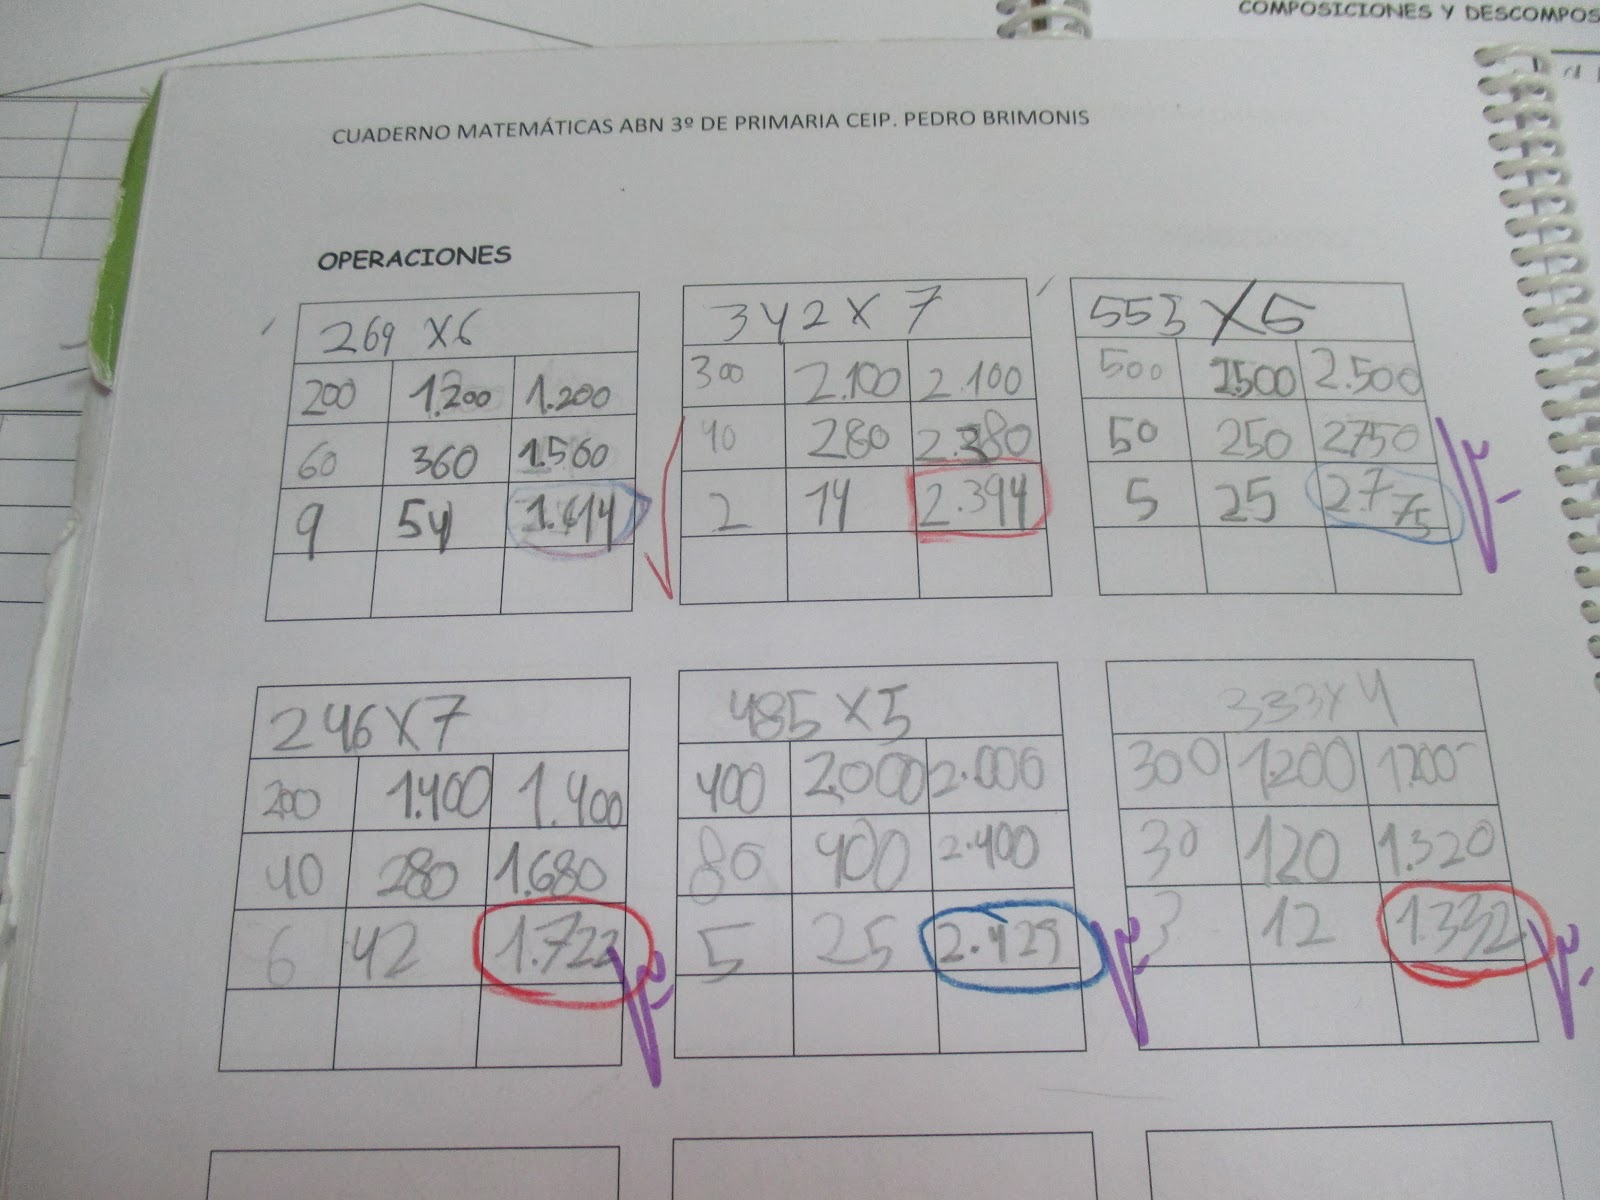 COMPOSICIONES Y DESCOMPOS
CUADERNO MATEMÁTICAS ABN 3º DE PRIMARIA CEIP. PEDRO BRIMONIS
OPERACIONES
269 X6
200 1.200 1.200
60 360 1.560
9 54 1.614
342 X 7
300 2.100 2.100
40 280 2.380
2 14 2.394
553 X 5
500 2500 2.500
50 250 2750
5 25 2.775
246 X 7
200 1.400 1.400
40 280 1.680
6 42 1.722
485 X 5
400 2.000 2.000
80 400 2.400
5 25 2.425
333 X 4
300 1.200 1.200
30 120 1.320
3 12 1.332